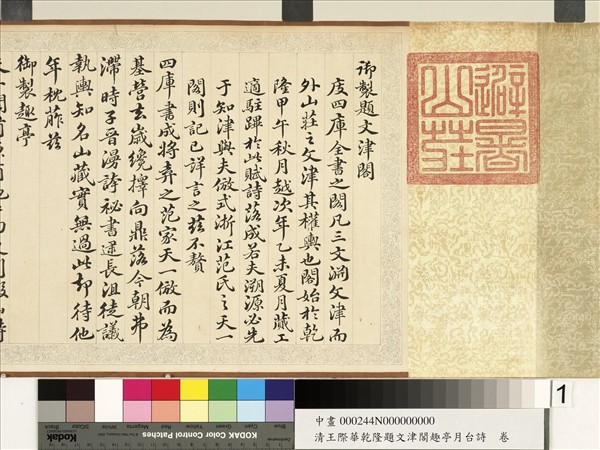 避暑山莊
御製題文津閣
庋四庫全書之閣凡三文淵文津而
外山莊之文津其權輿也閣始於乾
隆甲午秋月越次年乙未夏月蕆工
適駐蹕於此賦詩落成若夫溯源必先
于知津與夫倣式浙江范氏之天一
閣則記已詳言之茲不贅
四庫書成將弆之范家天一倣而為
基營去歲纔擇向鼎落今朝弗
滯時子晉漫誇秘書逮長沮徒議
執輿知名山藏實無過此却待他
年枕葄茲
御製趣亭
Kodak
KODAK Color Control Patches
Black
3/Color
White
Magenta
Red
Yellow
Green
Cyan
Blue
1
中畫 000244N000000000
清王際華乾隆題文津閣趣亭月台詩 卷